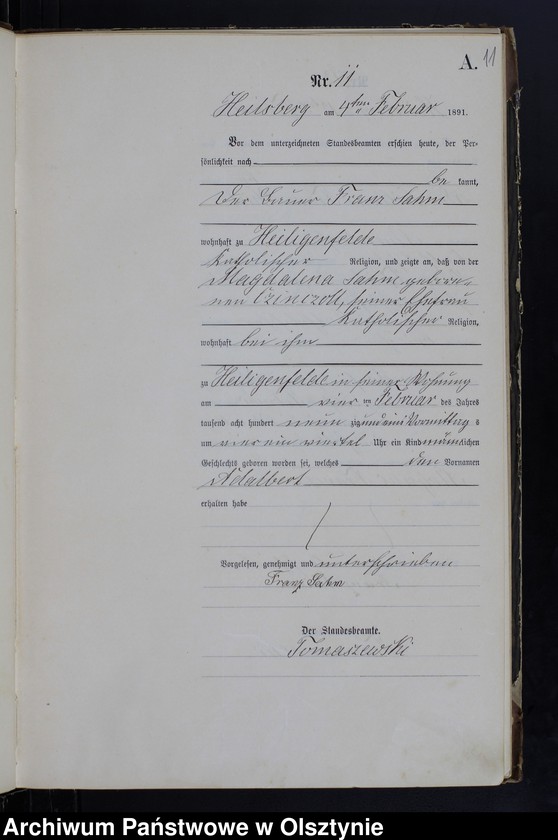 A. 11
Nr. 11
Heilsberg am 4ten Februar 1891.
Vor dem unterzeichneten Standesbeamten erschien heute, der Per-
sönlichkeit nach
be kannt,
der Bauer Franz Sahm
wohnhaft zu Heiligenfelde
Katholischer Religion, und zeigte an, daß von der
Magdalena Sahm gebore-
nen Czinczoll, seiner Ehefrau
Katholischer Religion,
wohnhaft bei ihm
zu Heiligenfelde in seiner Wohnung
am vier ten Februar des Jahres
tausend acht hundert neun zig und eins Vormittag s
um vier ein viertel Uhr ein Kind männlichen
Geschlechts geboren worden sei, welches den Vornamen
Adalbert
erhalten habe
Vorgelesen, genehmigt und unterschrieben
Franz Sahm
Der Standesbeamte.
Tomaszewski
Archiwum Państwowe w Olsztynie